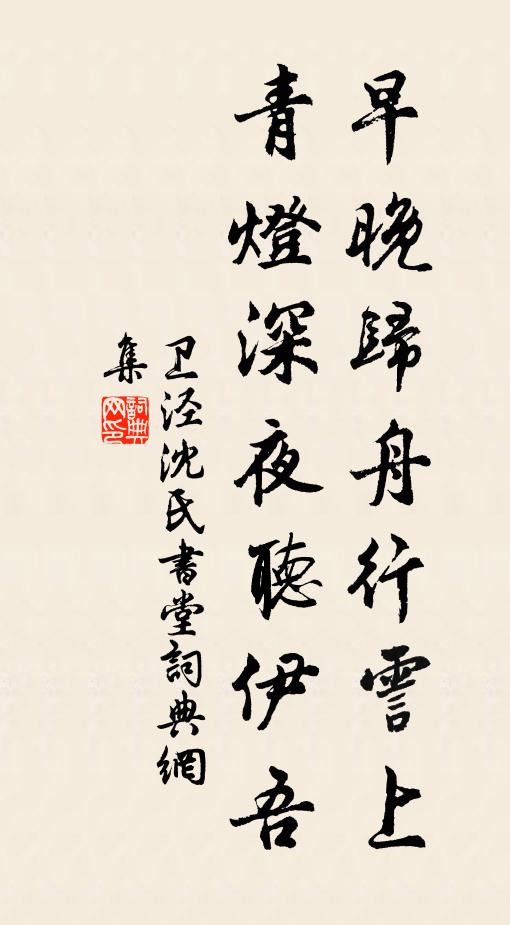 早晚歸舟行霅上
青燈深夜聽伊吾
卫泾沈氏書堂詞典網
集
詞典
网印